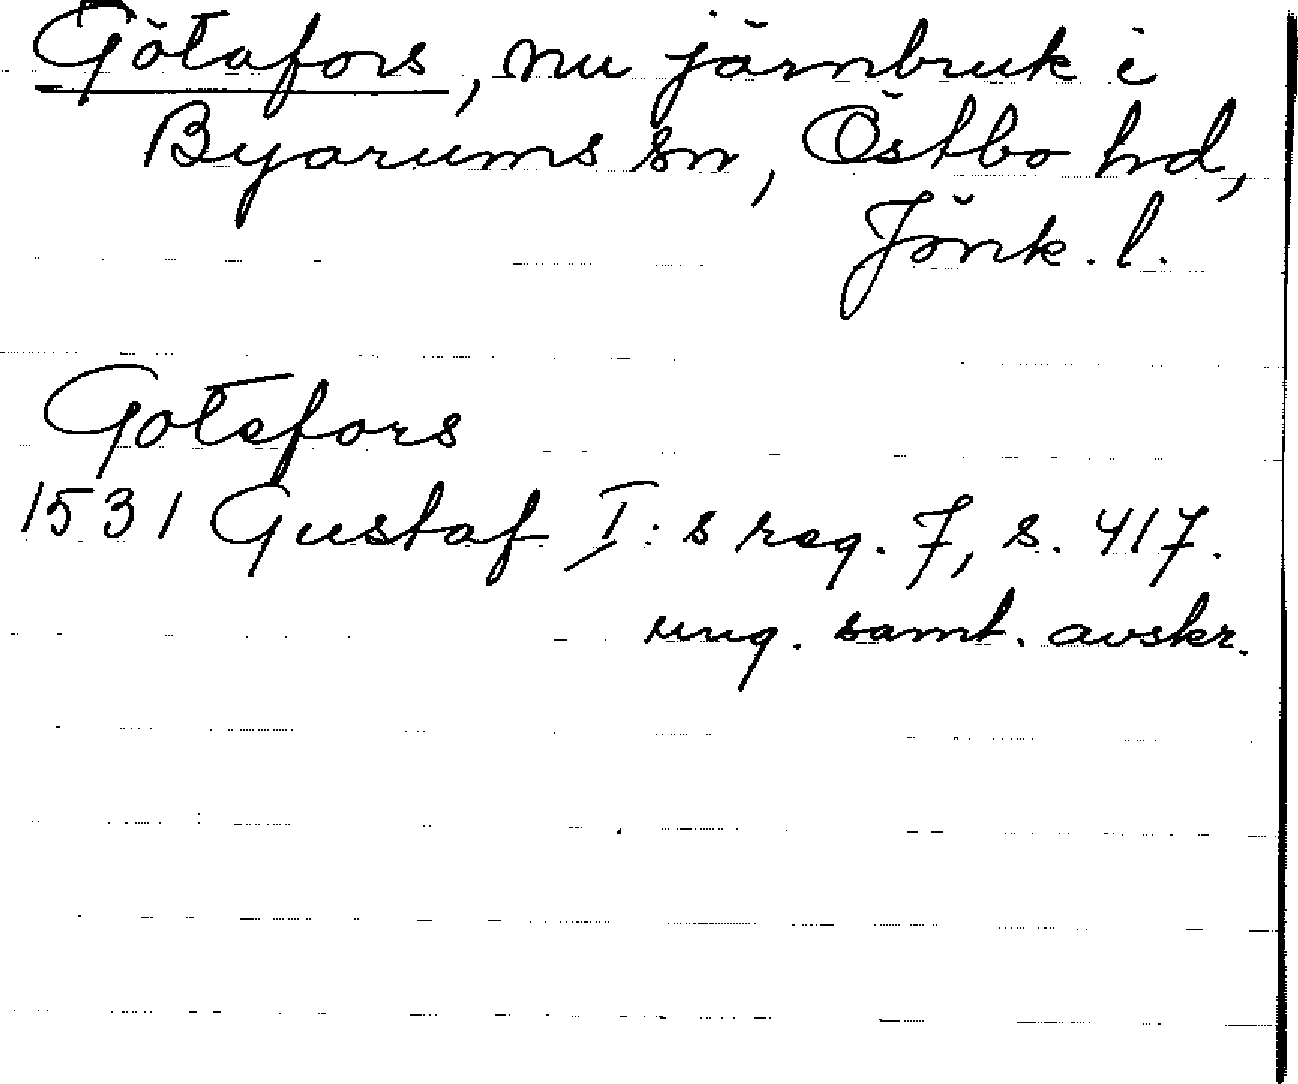 Götafors, nu järnbruk i
Byarums sn, Östbo hd,
Jönk. l.
Gotefors
1531 Gustaf I:s reg. 7, s. 417.
ung. samt. avskr.